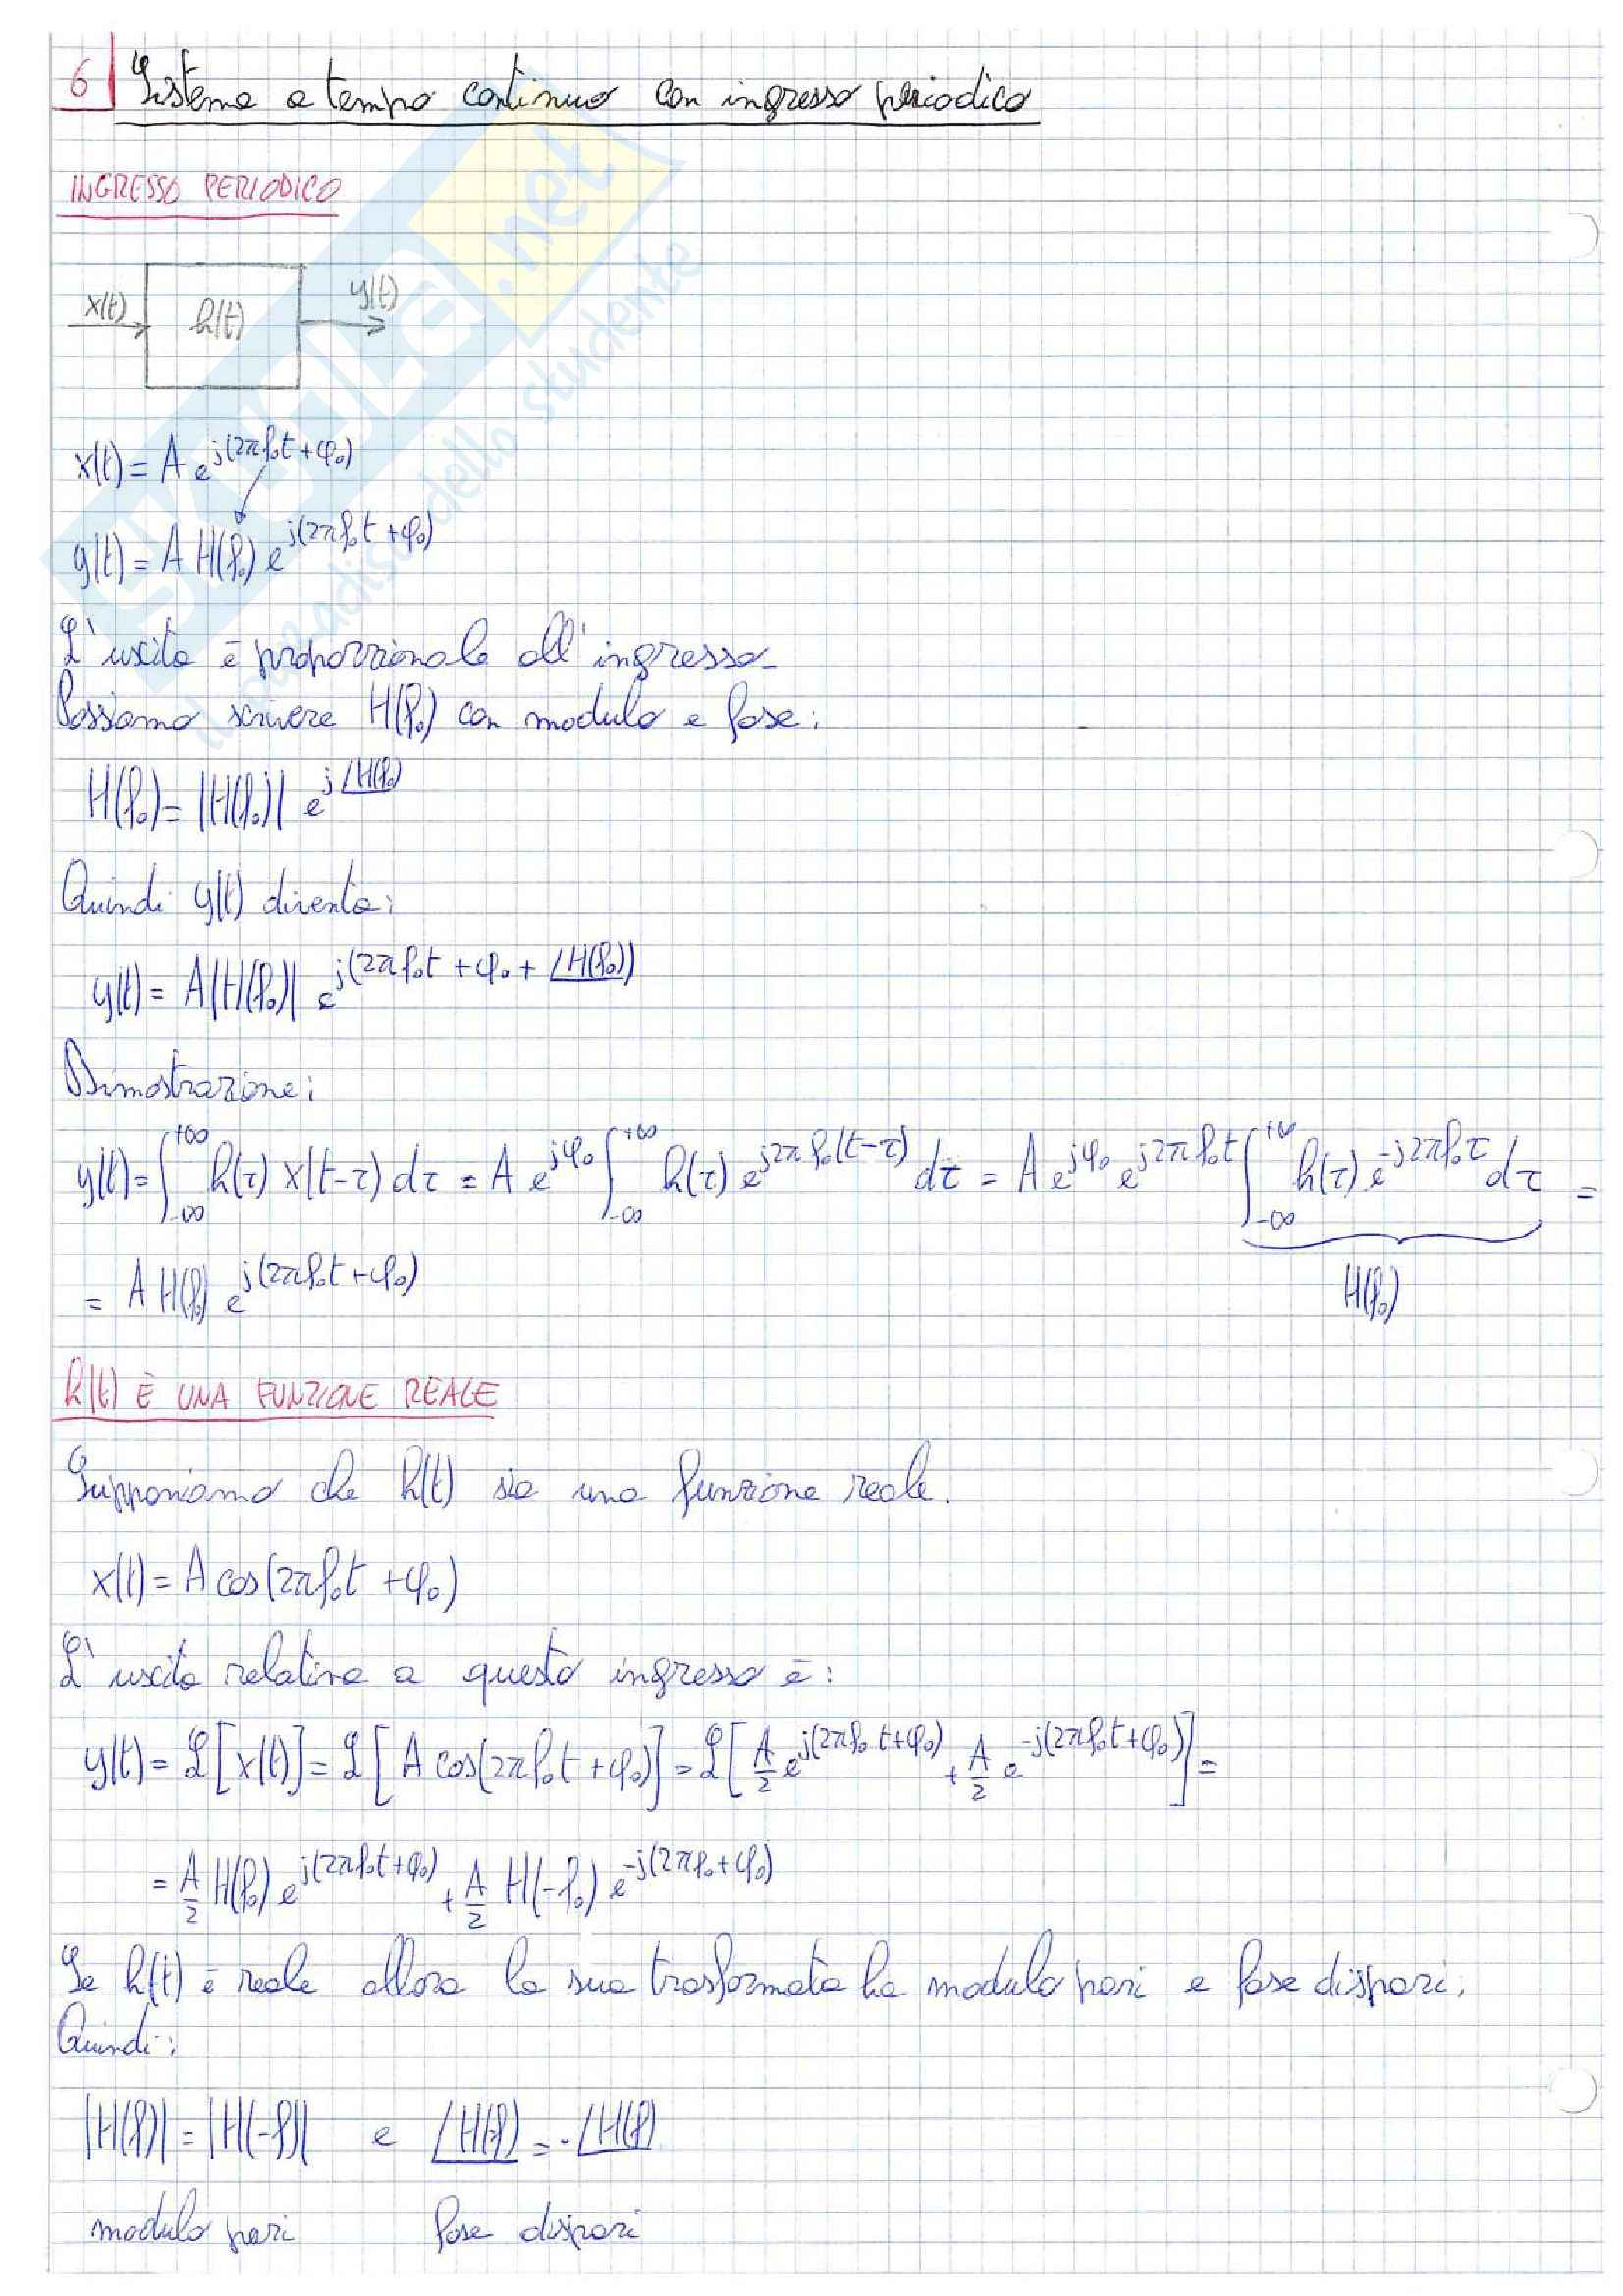 6 Sistema a tempo continuo con ingresso periodico
INGRESSO PERIODICO
x(t) h(t) y(t)
x(t) = A e^{j(2πf₀t + φ₀)}
y(t) = A H(f₀) e^{j(2πf₀t + φ₀)}
L'uscita è proporzionale all'ingresso.
Possiamo scrivere H(f₀) con modulo e fase:
H(f₀) = |H(f₀)| e^{j∠H(f₀)}
Quindi y(t) diventa:
y(t) = A|H(f₀)| e^{j(2πf₀t + φ₀ + ∠H(f₀))}
Dimostrazione:
y(t) = ∫_{-∞}^{+∞} h(τ) x(t-τ) dτ = A e^{jφ₀} ∫_{-∞}^{+∞} h(τ) e^{j2πf₀(t-τ)} dτ = A e^{jφ₀} e^{j2πf₀t} ∫_{-∞}^{+∞} h(τ) e^{-j2πf₀τ} dτ =
= A H(f₀) e^{j(2πf₀t + φ₀)} H(f₀)
h(t) È UNA FUNZIONE REALE
Supponiamo che h(t) sia una funzione reale.
x(t) = A cos(2πf₀t + φ₀)
L'uscita relativa a questo ingresso è:
y(t) = ℒ[x(t)] = ℒ[A cos(2πf₀t + φ₀)] = ℒ[A/2 e^{j(2πf₀t + φ₀)} + A/2 e^{-j(2πf₀t + φ₀)}] =
= A/2 H(f₀) e^{j(2πf₀t + φ₀)} + A/2 H(-f₀) e^{-j(2πf₀ + φ₀)}
Se h(t) è reale allora la sua trasformata ha modulo pari e fase dispari.
Quindi:
|H(f)| = |H(-f)| e ∠H(f) = -∠H(f)
modulo pari fase dispari
SKUOLA.net
il paradiso dello studente